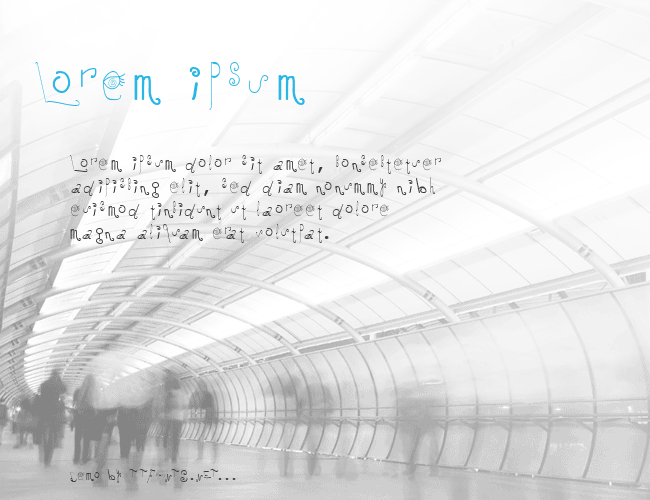 Lorem ipsum
Lorem ipsum dolor sit amet, consectetuer
adipiscing elit, sed diam nonummy nibh
euismod tincidunt ut laoreet dolore
magna aliquam erat volutpat.
Demo by TTFONTS.NET...